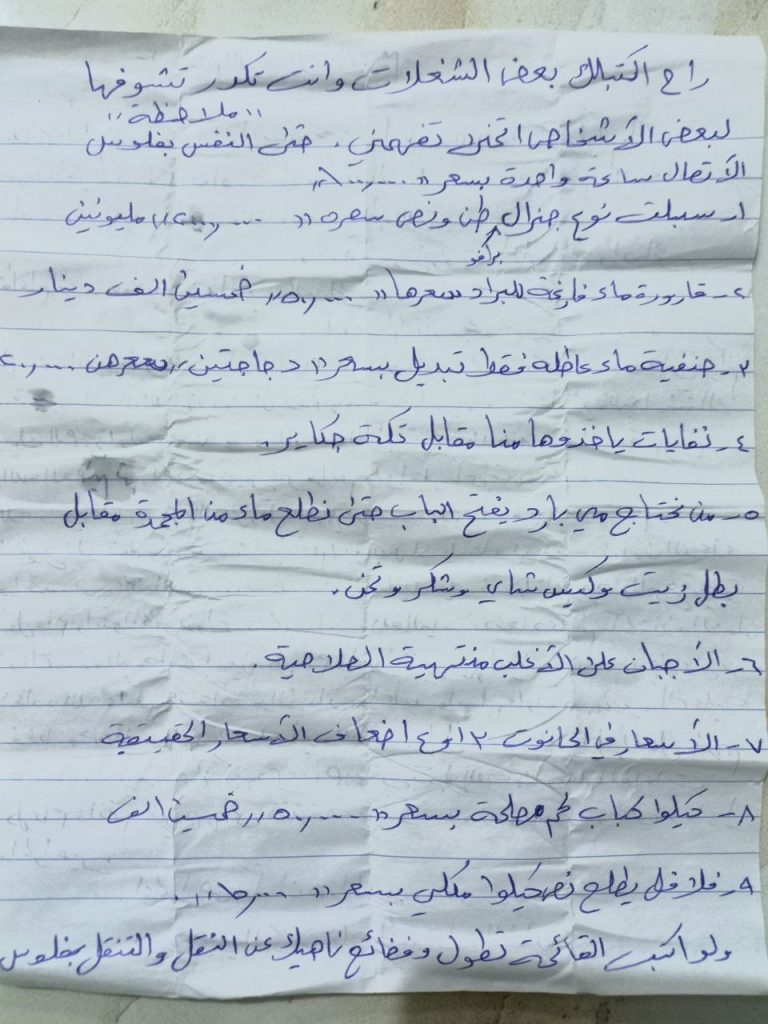 راح اكتبلك بعض الشغلات وانت تكدر تشوفها
"ملاحظة"
لبعض الأشخاص اتخيرك تفهمني. حتى النفس بفلوس
الأتصال ساعة واحدة بسعر
١. سبلت نوع جنرال طن ونص سعره "٢٠٠٠٠٠٠" مليونين
براغو
٢- قارورة ماء فارغة للبراد سعرها "٥٠,٠٠٠" خمسين الف دينار
٣- حنفية ماء عاطله فقط تبديل بسعر "دجاجتين" سعرهن
٤- نفايات ياخذوها منا مقابل تكة جكاير.
٥- من نحتاج مي بارد يفتح الباب حتى نطلع ماء من المجمدة مقابل
بطل زيت وكيس شاي وشكر وتمن.
٦- الأجبان على الأغلب منتهية الصلاحية.
٧- الأسعار في الحانوت ٣ او ٤ اضعاف الأسعار الحقيقية
٨- كيلوا كباب لحم بسعر "٥٠,٠٠٠" خمسين الف
٩- فلافل يطلع نص كيلوا مكلي بسعر
ولو اكتب القائمة تطول وفضائع ناهيك عن النقل والتنقل بفلوس